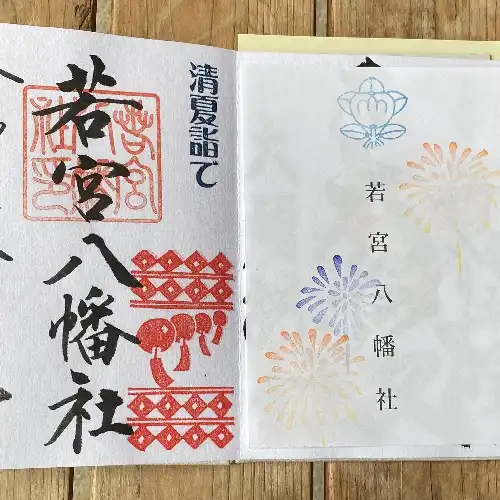 清夏詣で
若宮八幡社
若宮社印
若宮八幡社